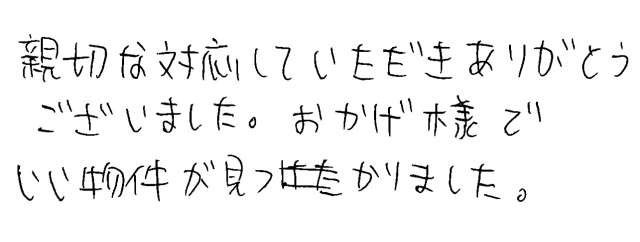 親切な対応していただきありがとう
ございました。おかげ様で
いい物件が見つかりました。